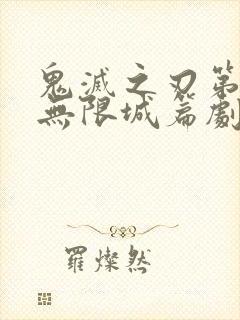 鬼滅之刃第
無限城篇劇
羅燦然